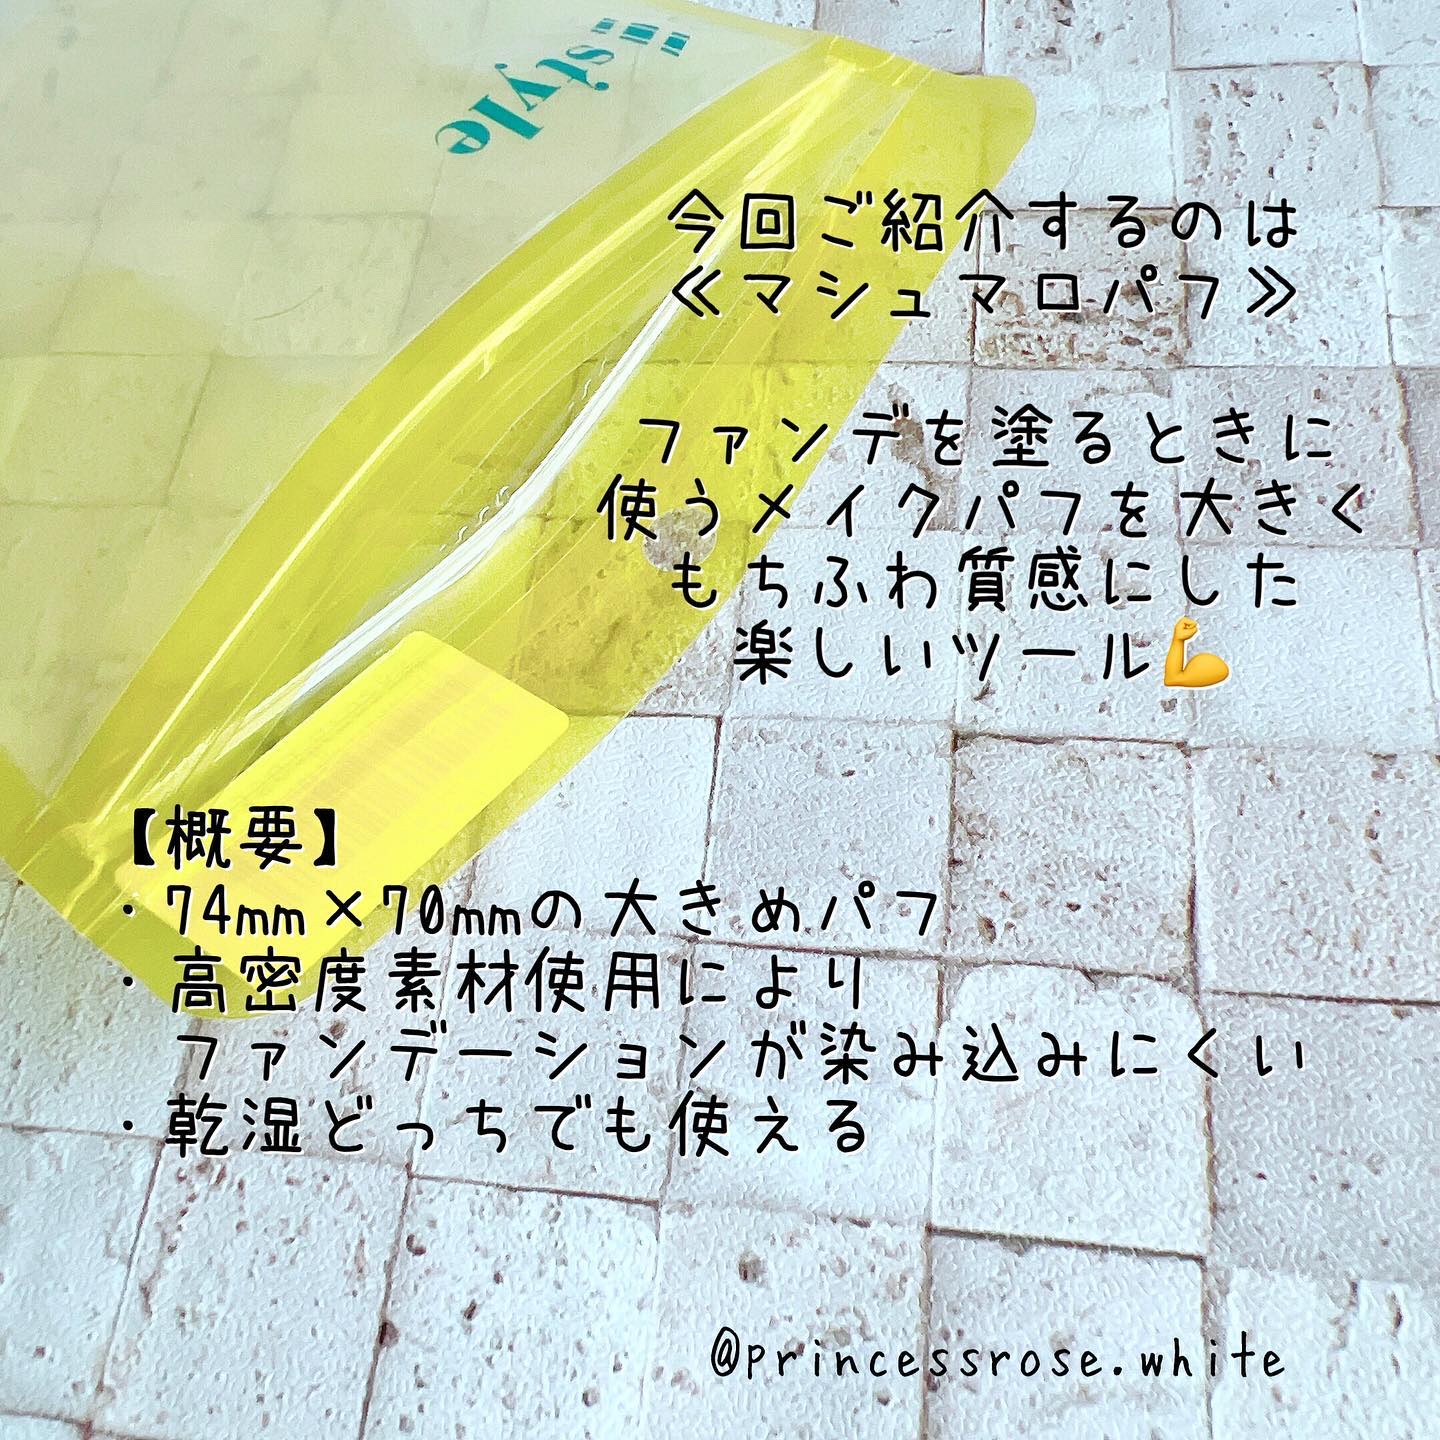 style
今回ご紹介するのは
≪マシュマロパフ≫
ファンデを塗るときに
使うメイクパフを大きく
もちふわ質感にした
楽しいツール💪
【概要】
・74mm×70mmの大きめパフ
・高密度素材使用により
ファンデーションが染み込みにくい
・乾湿どっちでも使える
@princessrose.white